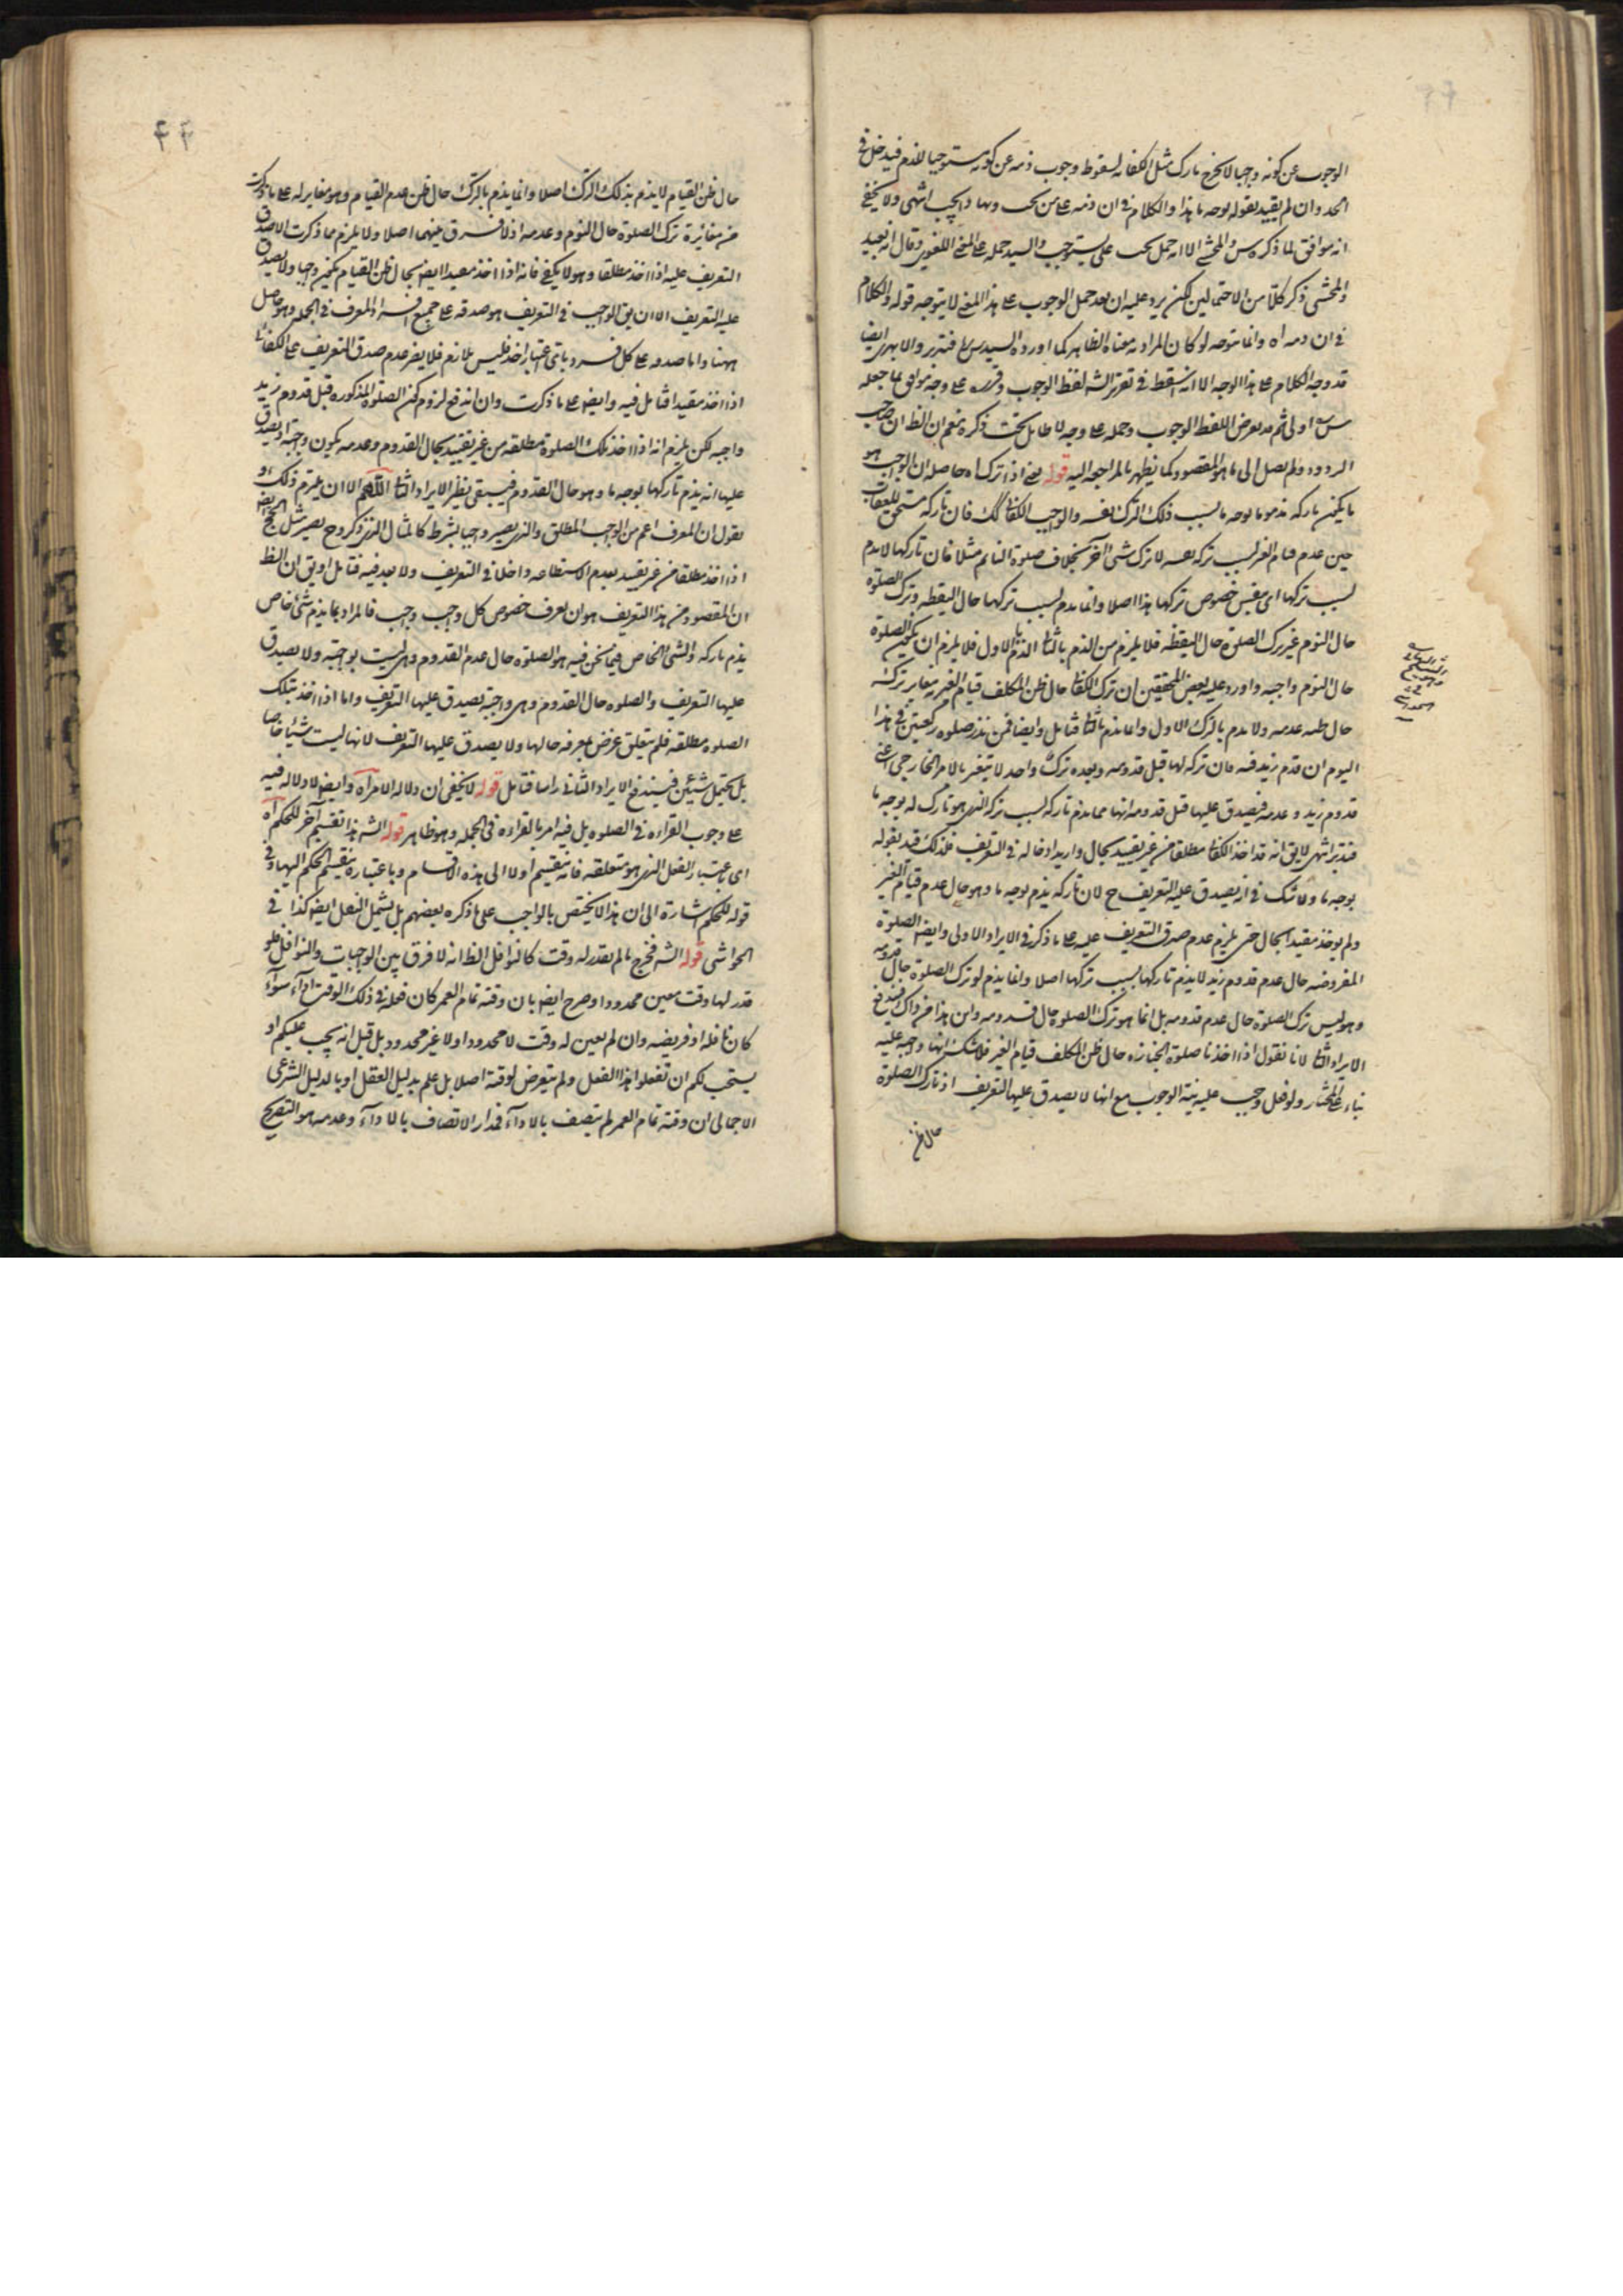 الوجوب عن كونه واجبا لا يخرج تارك مثل الكفائي لسقوط وجوب ذمه عن كونه مستوجبا للذم فيدخل في
الحد وان لم يقيد بقوله بوجه ما هذا والكلام في ان ذمه على من يجب انتهى ولا يخفى
انه موافق لما ذكره س والمحشي الا انه حمل يجب على يستوجب والسيد حمله على المعنى اللغوي وقال انه بعيد
والمحشي ذكر كلا من الاحتمالين لكن يرد عليه ان بعد حمل الوجوب على هذا المعنى لا يتوجه قوله والكلام
في ان ذمه اه وانما يتوجه لو كان المراد معناه الظاهر كما اورده السيد س فتدبر والابهري ايضا
قد وجه الكلام على هذا الوجه الا انه اسقط في تقرير الشه لفظ الوجوب وقرره على وجه يوافق ما جعله
س اولى ثم تعرض للفظ الوجوب وحمله على وجه لا طايل تحت ذكره نعم ان الظ ان صاحب
الردود لم يصل الى ما هو المقصود كما يظهر بالمراجعة اليه قوله يعني اذا تركه اه حاصله ان الواجب هو
ما يكون تاركه مذموما بوجه ما بسبب ذلك الترك نفسه والواجب الكفائي كك فان تاركه مستحق للعقاب
حين عدم قيام الغير بسبب تركه نفسه لا ترك شئ آخر بخلاف صلوة النايم مثلا فان تاركها لا يذم
بسبب تركها اي بنفس خصوص تركها هذا اصلا وانما يذم بسبب تركها حال اليقظه وترك الصلوة
حال النوم غير ترك الصلوة حال اليقظه فلا يلزم من الذم بالثاني الذم بالاول فلا يلزم ان يكون الصلوة
حال النوم واجبه واورد عليه بعض المحققين ان ترك الكفائي حال ظن المكلف قيام الغير به مغاير تركه
حال ظنه عدمه ولا يذم بالترك الاول وانما يذم بالثاني فتامل وايضا فمن نذر صلوة ركعتين في هذا
اليوم ان قدم زيد فيه فان تركه لها قبل قدومه وبعده ترك واحد لا يتغير بالامر الخارجي اعني
قدوم زيد وعدمه فيصدق عليها قبل قدومه انها مما يذم تاركه بسبب تركه الذي هو تارك له بوجه ما
فتدبر انتهى لا يق انه قد اخذ الكفائي مطلقا من غير تقييد بحال واريد ادخاله في التعريف فلذلك قيد بقوله
بوجه ما ولا شك في انه يصدق عليه التعريف ح لان تاركه يذم بوجه ما وهو حال عدم قيام الغير
ولم يوخذ مقيدا بحال حتى يلزم عدم صدق التعريف عليه على ما ذكر في الايراد الاول وايضا الصلوة
المفروضه حال عدم قدوم زيد لا يذم تاركها بسبب تركها اصلا وانما يذم لو ترك الصلوة حال قدومه
وهو ليس ترك الصلوة حال عدم قدومه بل انما هو ترك الصلوة حال قدومه واين هذا من ذاك فيندفع
الايراد الثاني لانا نقول اذا اخذنا صلوة الجنازه حال ظن المكلف قيام الغير فلا شك انها واجبه عليه
بناء على المختار ولو فعل وجب عليه نية الوجوب مع انها لا يصدق عليها التعريف اذ تارك الصلوة
حال ظن
حال ظن القيام لا يذم بذلك الترك اصلا وانما يذم بالترك حال ظن عدم القيام وهو مغاير له على ما ذكرت
من مغايرة ترك الصلوة حال النوم وعدمه اذ لا فرق بينهما اصلا ولا يلزم مما ذكرت الا صدق
التعريف عليه اذا اخذ مطلقا وهو لا يكفي فانه اذا اخذ مقيدا ايضا بحال ظن القيام يكون واجبا ولا يصدق
عليه التعريف الا ان يق الواجب في التعريف هو صدقه على جميع افراد المعرف في الجمله وهو حاصل
ههنا واما صدقه على كل فرد باي اعتبار اخذ فليس بلازم فلا يضر عدم صدق التعريف على الكفائي
اذا اخذ مقيدا فتامل فيه وايضا على ما ذكرت وان اندفع لزوم كون الصلوة المذكوره قبل قدوم زيد
واجبه لكن يلزم انه اذا اخذ تلك الصلوة مطلقه من غير تقييد بحال القدوم وعدمه يكون واجبة اذ يصدق
عليها انه يذم تاركها بوجه ما وهو حال القدوم فيبقى نظير الايراد الثاني اللهم الا ان يلتزم ذلك او
يقول ان المعرف اعم من الواجب المطلق والذي يصير واجبا بشرط كالمثال الذي ذكر وح يصير مثل الحج ايضا
اذا اخذ مطلقا من غير تقييد بعدم الاستطاعه داخلا في التعريف ولا بعد فيه فتامل او يق ان الظ
ان المقصود من هذا التعريف هو ان نعرف خصوص كل واجب واجب فالمراد بما يذم شئ خاص
يذم تاركه والشئ الخاص فيما نحن فيه هو الصلوه حال عدم القدوم وهي ليست بواجبة ولا يصدق
عليها التعريف والصلوه حال القدوم وهي واجبة يصدق عليها التعريف واما اذا اخذ تلك
الصلوه مطلقه فلم يتعلق غرض بمعرفه حالها ولا يصدق عليها التعريف لانها ليست شيئا خاصا
بل يحتمل شيئين فيندفع الايراد الثاني راسا فتامل قوله لا يخفى ان دلاله الامر اه وايضا لا دلاله فيه
على وجوب القراءه في الصلوه بل فيه امر بالقراءه في الجمله وهو ظاهر قوله الشه هذا تقسيم آخر للحكم اه
اي باعتبار الفعل الذي هو متعلقه فانه ينقسم اولا الى هذه الاقسام وباعتباره ينقسم الحكم اليها وفي
قوله للحكم اشارة الى ان هذا لا يختص بالواجب على ما ذكره بعضهم بل يشمل النفل ايضا كذا في
الحواشي قوله الشه فخرج ما لم يقدر له وقت كالنوافل الظ انه لا فرق بين الواجبات والنوافل فلو
قدر لها وقت معين محدودا وصرح ايضا بان وقته تمام العمر كان فعله في ذلك الوقت اداء سواء
كان نافله او فريضه وان لم يعين له وقت لا محدود او لا غير محدود بل قيل انه يجب عليكم او
يستحب لكم ان تفعلوا هذا الفعل ولم يتعرض لوقته اصلا بل علم بدليل العقل او بالدليل الشرعي
الاجمالي ان وقته تمام العمر لم يتصف بالاداء فمدار الاتصاف بالاداء وعدمه هو التصريح